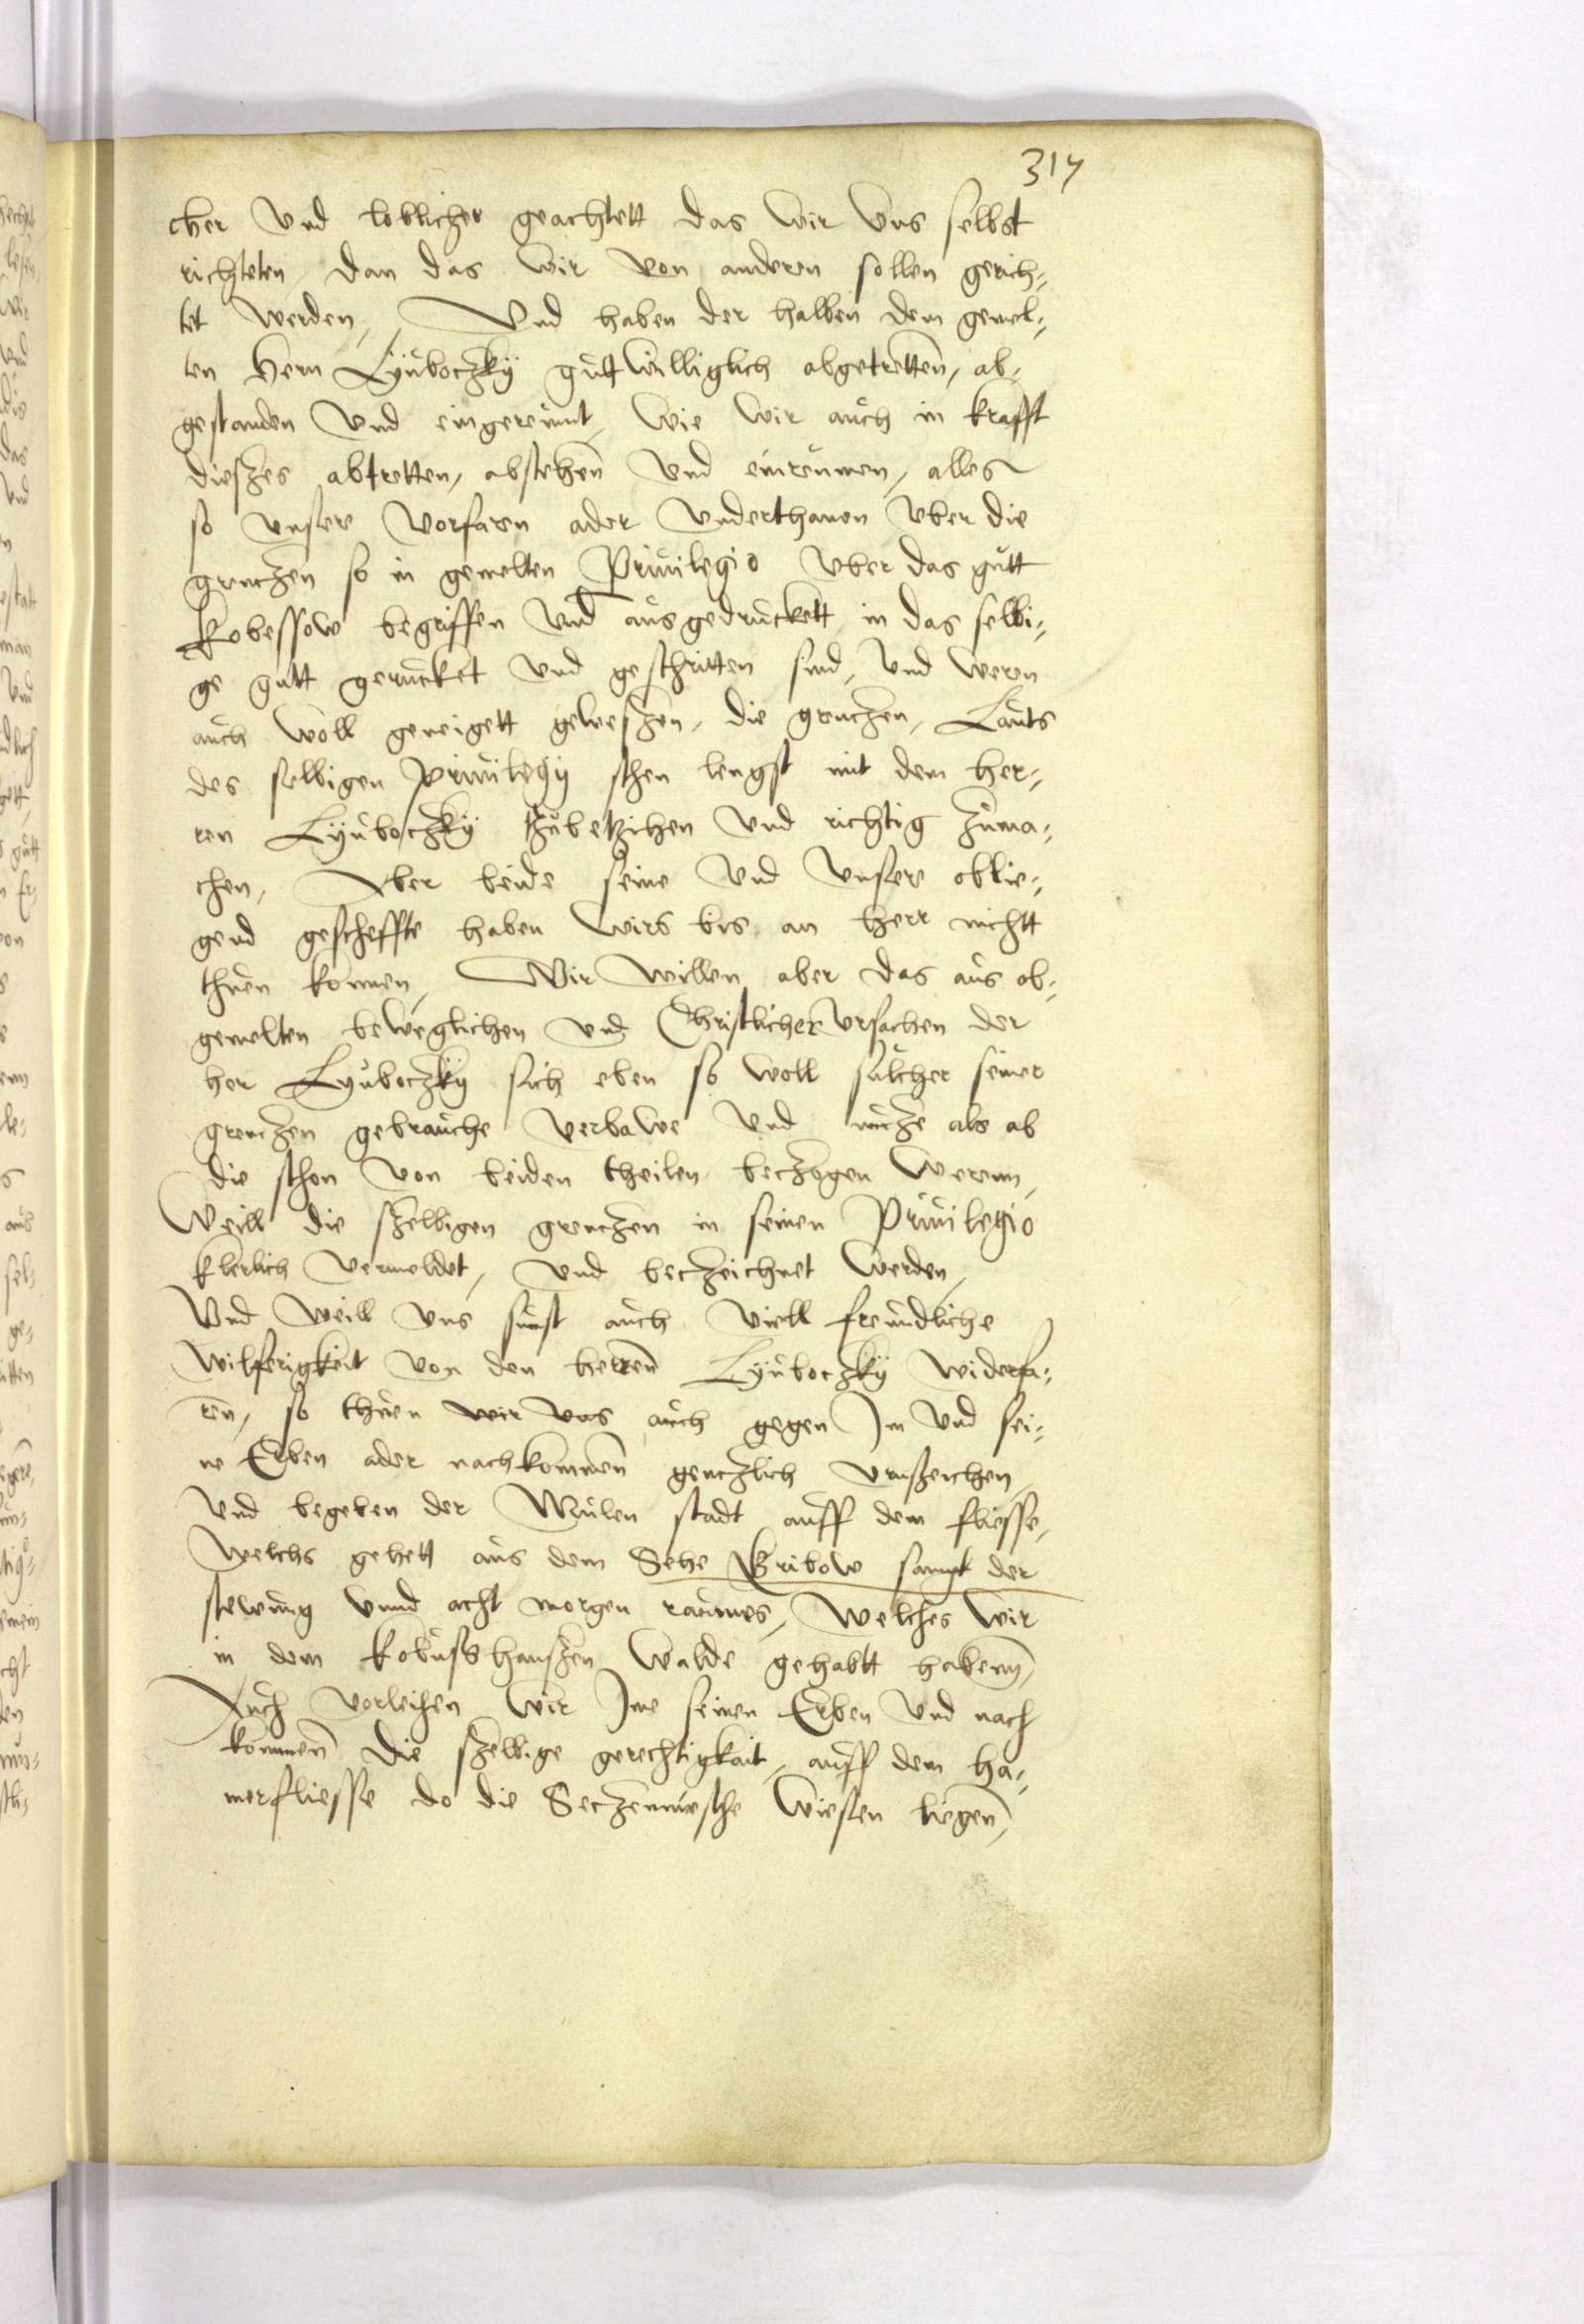 317
cher vnd loblicher geachtett das wir vns selbst
richteten dan das wir von anderen sollen gerich¬
tet werden, Vnd haben der halben dem gemel¬
ten Hern Lÿuboczkÿ guttwilliglich abgetrettenn, ab¬
gestanden vnd eingereumt, wie wir auch in krafft
dieszes abtretten, abstehenn vnd einreumen, alles
so vnsere vorfaren ader vnderthanen vber die
grenczen so in gemelten Priuilegio vber das gutt
Kobessow begriffen vnd ausgedruckett in das selbi¬
ge gutt gerucket vnd geschritten sind, vnd weren
auch woll geneigett geweszen, die grenczen, Lauts
des selbigen priuilegÿ schon lengst mit dem her¬
ren Lÿuboczkÿ tzubetzihen vnd richtig zuma¬
chen, Aber beide seine vnd vnsere oblie¬
gend gescheffte haben wirs bis an herr nichtt
thuen konnen, Wir willen aber das aus ob¬
gemelten beweglichen vnd Christlicher vrsachen der
her Lyuboczkÿ sich eben so woll sulcher seiner
grenczen gebrauche verbawe vnd nucze als ob
die schon von beiden theilen beczogen werenn,
Weill die szelbigen grenczen in seinen Priuilegio
klerlich vermeldet, vnd beczeichnet werden,
Vnd weill vns sunst auch viell freundliche
wilferigkeit von den herrenn Lÿuboczkÿ widerfa¬
ren, so thuen wir vns auch gegen Im vnd sei¬
ne Erben ader nachkommenn genczlich vorszeichen,
vnd begeben der Mulen stadt auff dem fliesse,
welchs gehett aus dem Sehe Gribow sampt der
stewung vnnd acht morgen raumes, welches wir
in dem Kobusshauszen walde gehabtt habenn,
Auch vorleihen wir Ime seinen Erben vnd nach
kommenn die szelbige gerechtigkait, auff dem Ha¬
merfliesse do die Seczenniesche wiesen liegenn,